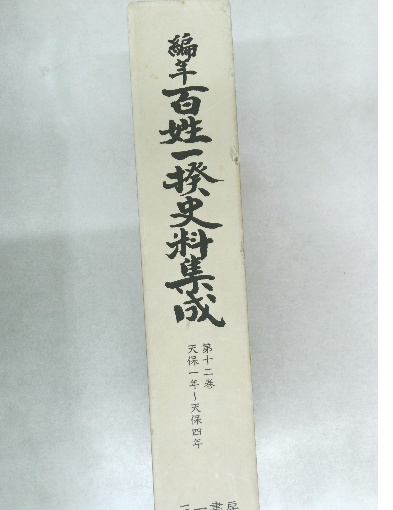 編年
百姓一揆史料集成
第十二巻
天保一年～天保四年
三一書房